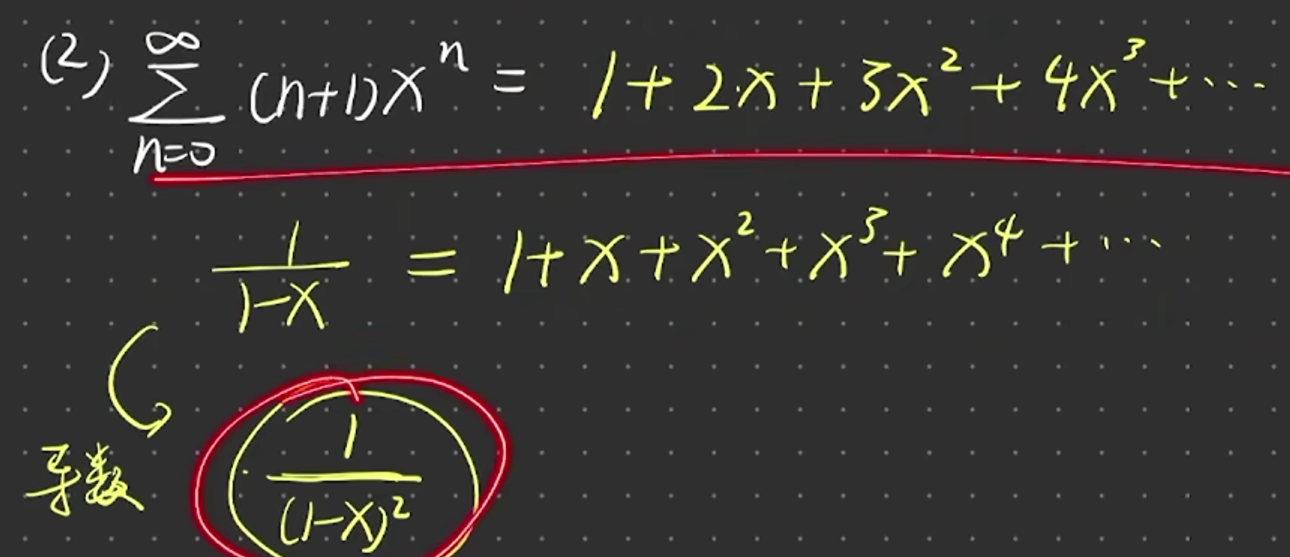 (2) ∑_{n=0}^{∞} (n+1)x^n = 1+2x+3x^2+4x^3+⋯
1/(1-x) = 1+x+x^2+x^3+x^4+⋯
导数 1/(1-x)^2